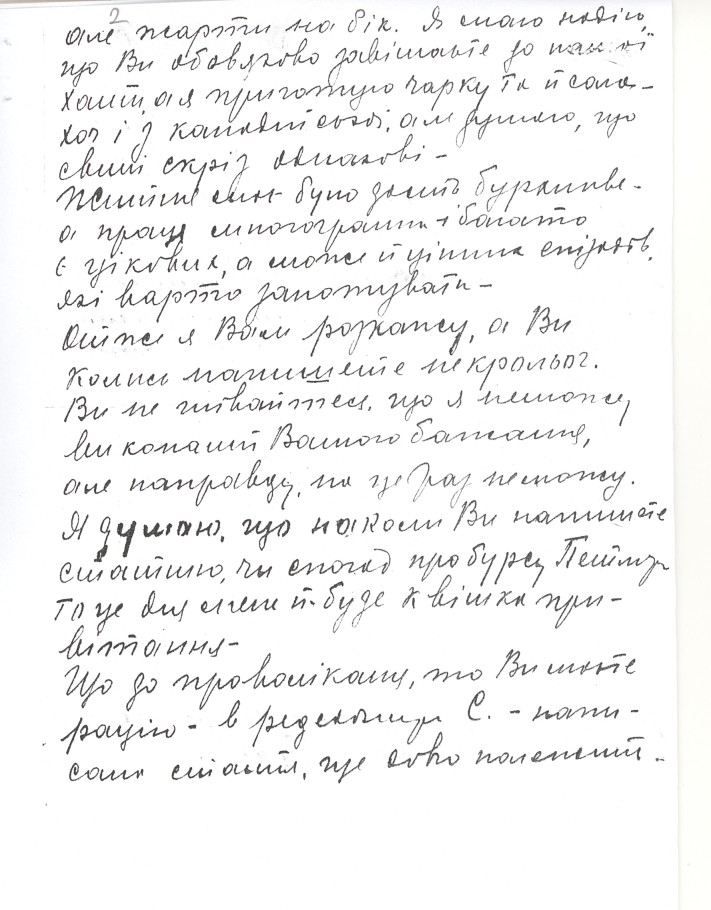 2
але жарти на бік. Я маю надію,
що Ви обовязково завітаєте до нашої
хати, а я приготую чарку та й сала-
хоч і з канадійської, але думаю, що
свині скрізь однакові -
Життя моє було досить бурхливе-
а праця многогранна і багато
є цікових, а може й цінних епізодів,
які варто занотувати -
Отже я Вам розкажу, а Ви
колись напишете некрольог.
Ви не гнівайтеся, що я неможу
виконати Вашого бажання,
але направду, на цей раз неможу.
Я думаю, що наколи Ви напишете
статтю, чи спогад про бурсу
То це для мене й буде квітка при-
вітання-
Що до проволікання, то Ви маєте
рацію - в С. - напи-
сана стаття, ще довго полежит -